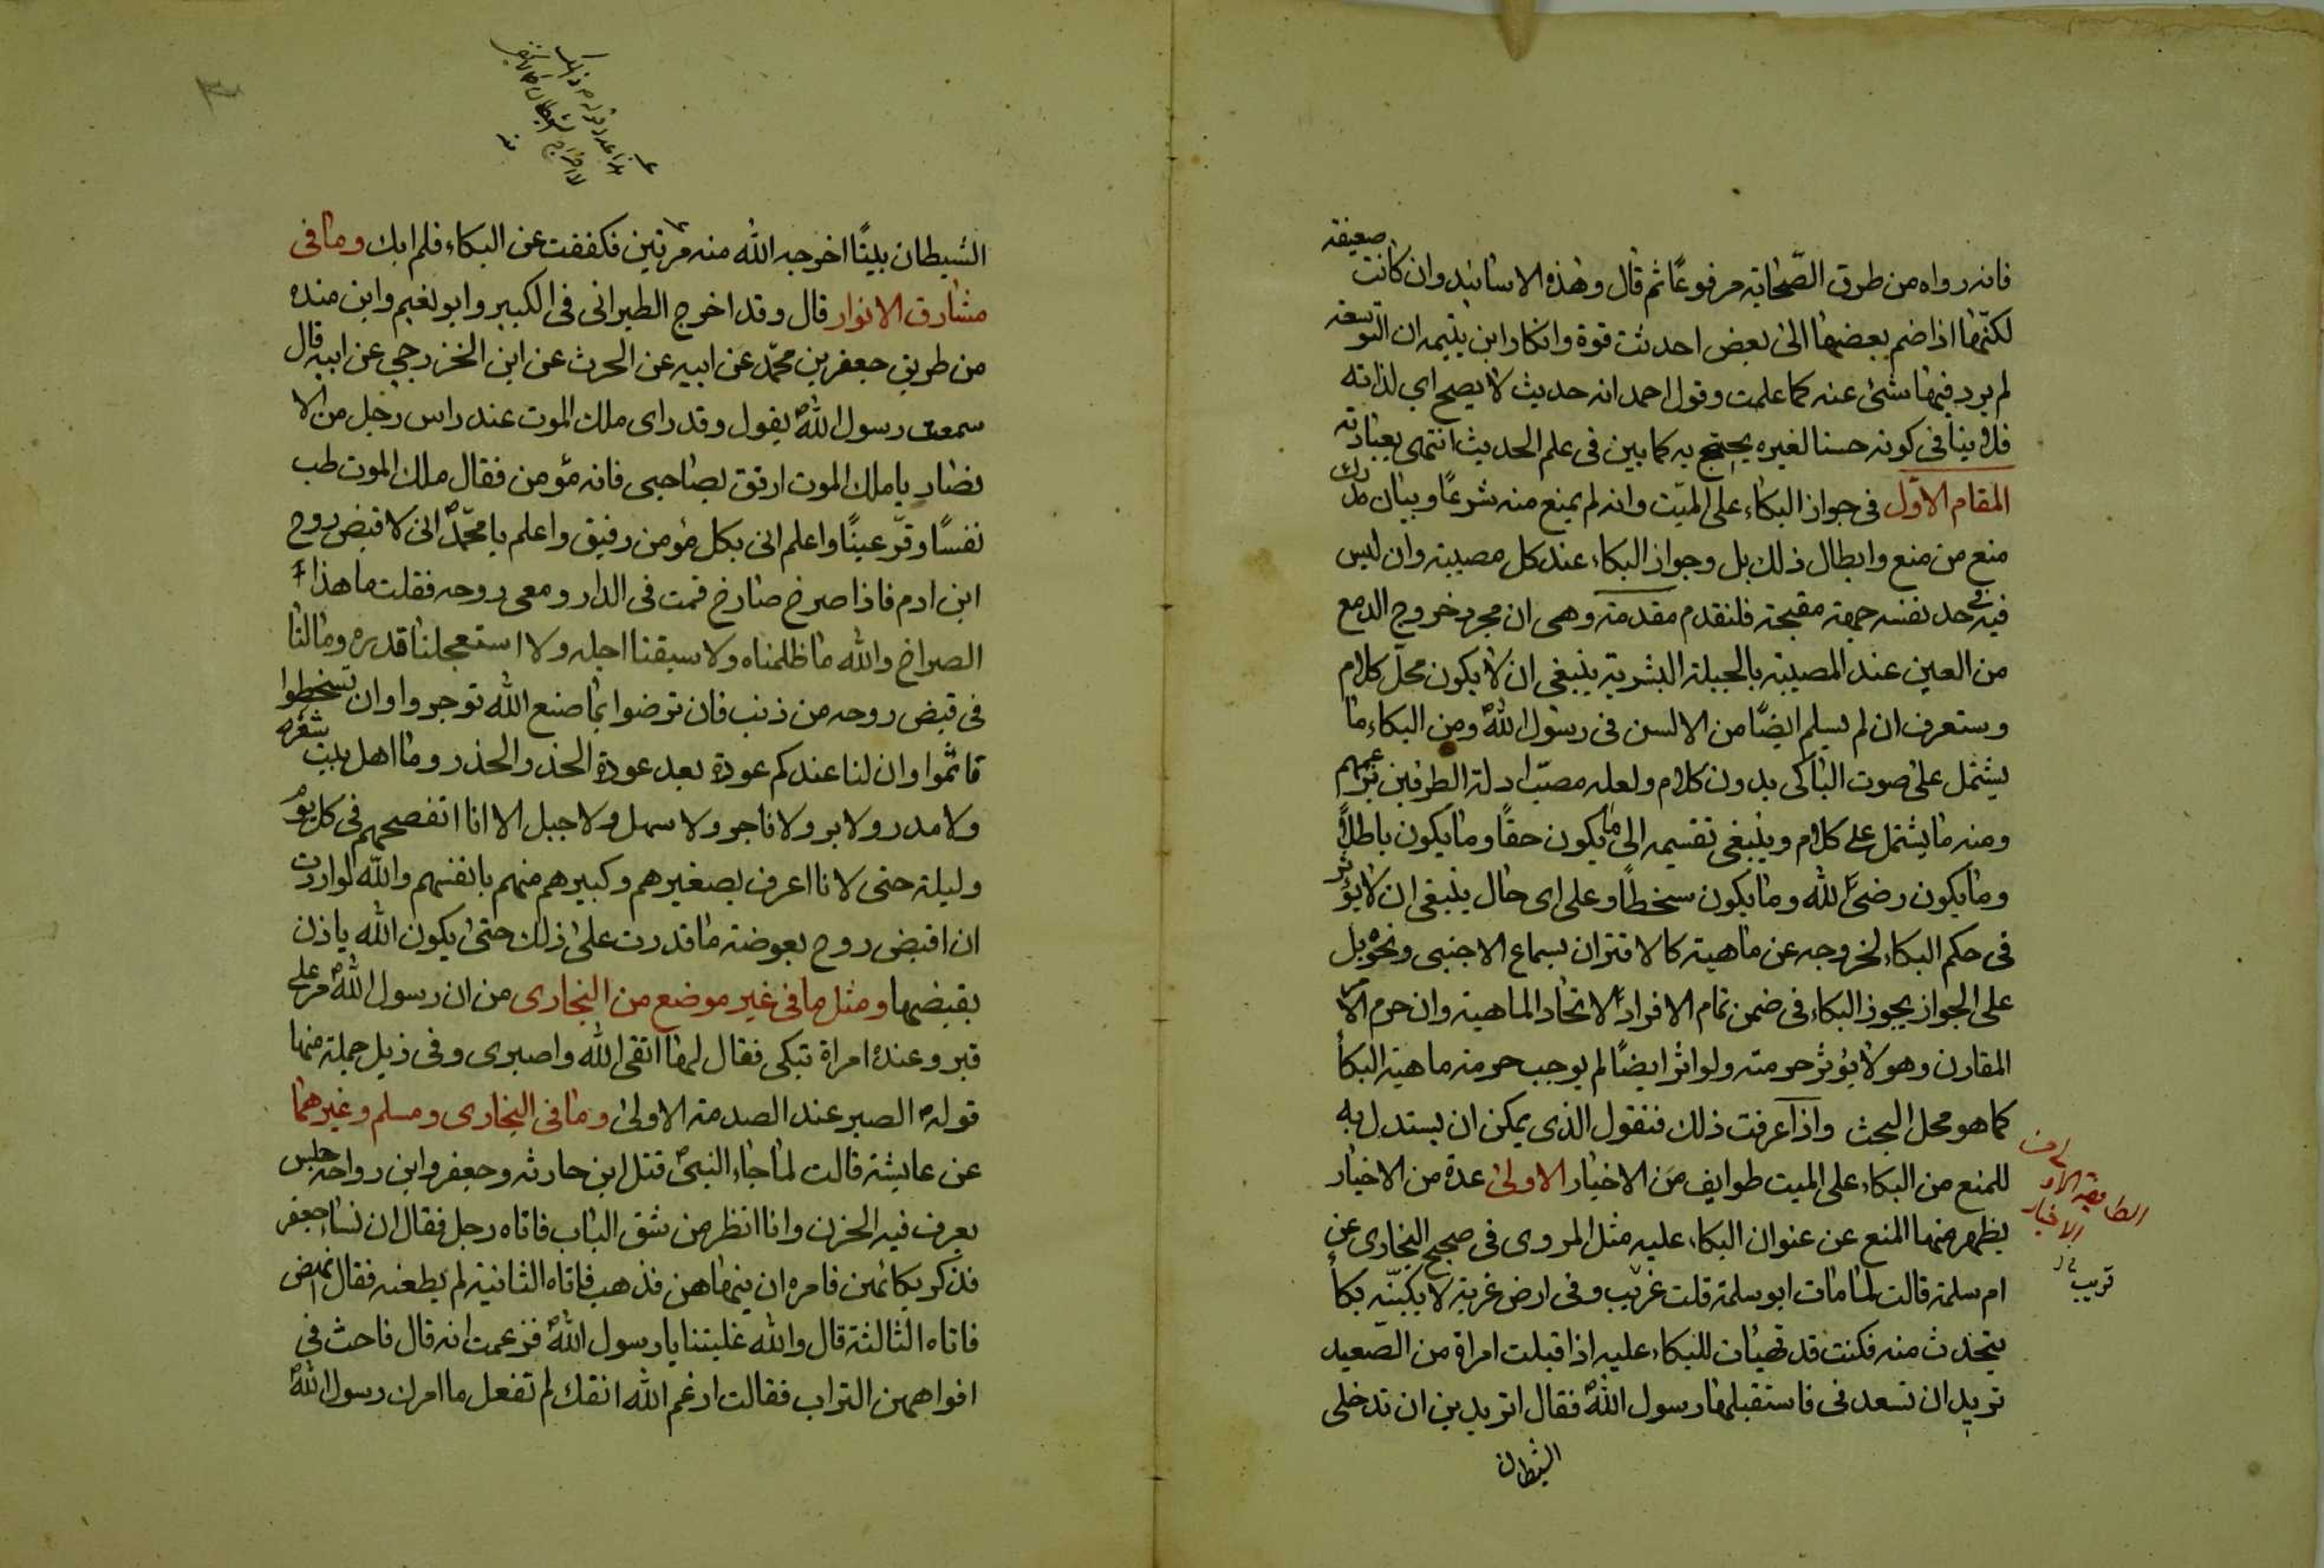 فانه رواه من طرق الصّحابة مرفوعًا ثم قال وهذه الاسانيد وان كانت ضعيفة
لكنّها اذا ضم بعضها الى بعض احدثت قوة وانكار ابن يتيمه ان التوسعة
لم يرد فيها شئ عنه كما علمت وقول احمد انه حديث لا يصح اي لذاته
فلا ينافى كونه حسنا لغيره يحتج به كما بين فى علم الحديث انتهى بعبارته
المقام الاوّل فى جواز البكاء على الميّت وانه لم يمنع منه شرعًا وبيان مدرك
منع من منع وابطال ذلك بل وجواز البكاء عند كل مصيبة وان ليس
فيه فى حد نفسه جهة مقبحة فلنقدم مقدمة وهى ان مجرد خروج الدمع
من العين عند المصيبة بالجبلة البشرية ينبغى ان لا يكون محلّ كلام
وستعرف ان لم يسلم ايضًا من الالسن فى رسول الله ومن البكاء ما
يشتمل على صوت الباكى بدون كلام ولعله مصبّ ادلة الطرفين
ومنه ما يشتمل على كلام وينبغى تقسيمه الى ما يكون حقًا وما يكون باطلًا
وما يكون رضىً لله وما يكون سخطًا وعلى اى حال ينبغى ان لا يؤثر
فى حكم البكاء لخروجه عن ماهيته كالاقتران بسماع الاجنبى ونحوه بل
على الجواز يجوز البكاء فى ضمن تمام الافراد لاتحاد الماهية وان حرم الامر
المقارن وهو لا يؤثر حرمته ولو اثر ايضًا لم يوجب حرمة ماهية البكاء
كما هو محل البحث واذا عرفت ذلك فنقول الذى يمكن ان يستدل به
للمنع من البكاء على الميت طوايف من الاخبار الاولى عدة من الاخبار
يظهر منها المنع عن عنوان البكاء عليه مثل المروى فى صحيح البخارى عن
ام سلمة قالت لما مات ابو سلمة قلت غريب وفى ارض غربة لا بكينّه بكاءً
يتحدث منه فكنت قد تهيات للبكاء عليه اذ اقبلت امراة من الصّعيد
تريد ان تسعدنى فاستقبلها رسول الله فقال اتريدين ان تدخلى
الشيطان
الطايفة الاولى من
الاخبار
الشيطان بيتًا اخرجه الله منه مرتين فكففت عن البكاء فلم ابك وما فى
مشارق الانوار قال وقد اخرج الطبرانى فى الكبير وابو نعيم وابن منده
من طريق جعفر بن محمّد عن ابيه عن الحرث عن ابن الخزرجي عن ابيه قال
سمعت رسول الله يقول وقد راى ملك الموت عند راس رجل من الا
نصار يا ملك الموت ارفق بصاحبى فانه مؤمن فقال ملك الموت طب
نفسًا وقرّ عينًا واعلم انى بكل مؤمن رفيق واعلم يا محمّد انى لاقبض روح
ابن ادم فاذا صرخ صارخ قمت فى الدار ومعى روحه فقلت ما هذا
الصراخ والله ما ظلمناه ولا سبقنا اجله ولا استعجلنا قدره وما لنا
فى قبض روحه من ذنب فان ترضوا بما صنع الله توجروا وان تسخطوا
تاثموا وان لنا عندكم عودة بعد عودة الحذر والحذر وما اهل بيت شعره
ولا مدر ولا بر ولا فاجر ولا سهل ولا جبل الا انا اتفصحهم فى كل يوم
وليلة حتى لانا اعرف بصغيرهم وكبيرهم منهم بانفسهم والله لو اردت
ان اقبض روح بعوضة ما قدرت على ذلك حتى يكون الله ياذن
بقبضها ومثل ما فى غير موضع من البخارى من ان رسول الله مر على
قبر وعنده امراة تبكى فقال لها اتقى الله واصبرى وفى ذيل جملة منها
قوله الصبر عند الصدمة الاولى وما فى البخارى ومسلم وغيرهما
عن عايشة قالت لما جاء النبى قتل ابن حارثه وجعفر وابن رواحه جلس
يعرف فيه الحزن وانا انظر من شق الباب فاتاه رجل فقال ان نساء جعفر
فذكر بكائهن فامره ان ينهاهن فذهب فاتاه الثانية لم يطعنه فقال انهض
فاتاه الثالثة قال والله غلبتنا يا رسول الله فزعمت انه قال فاحث فى
افواههن التراب فقالت ارغم الله انفك لم تفعل ما امرك رسول الله